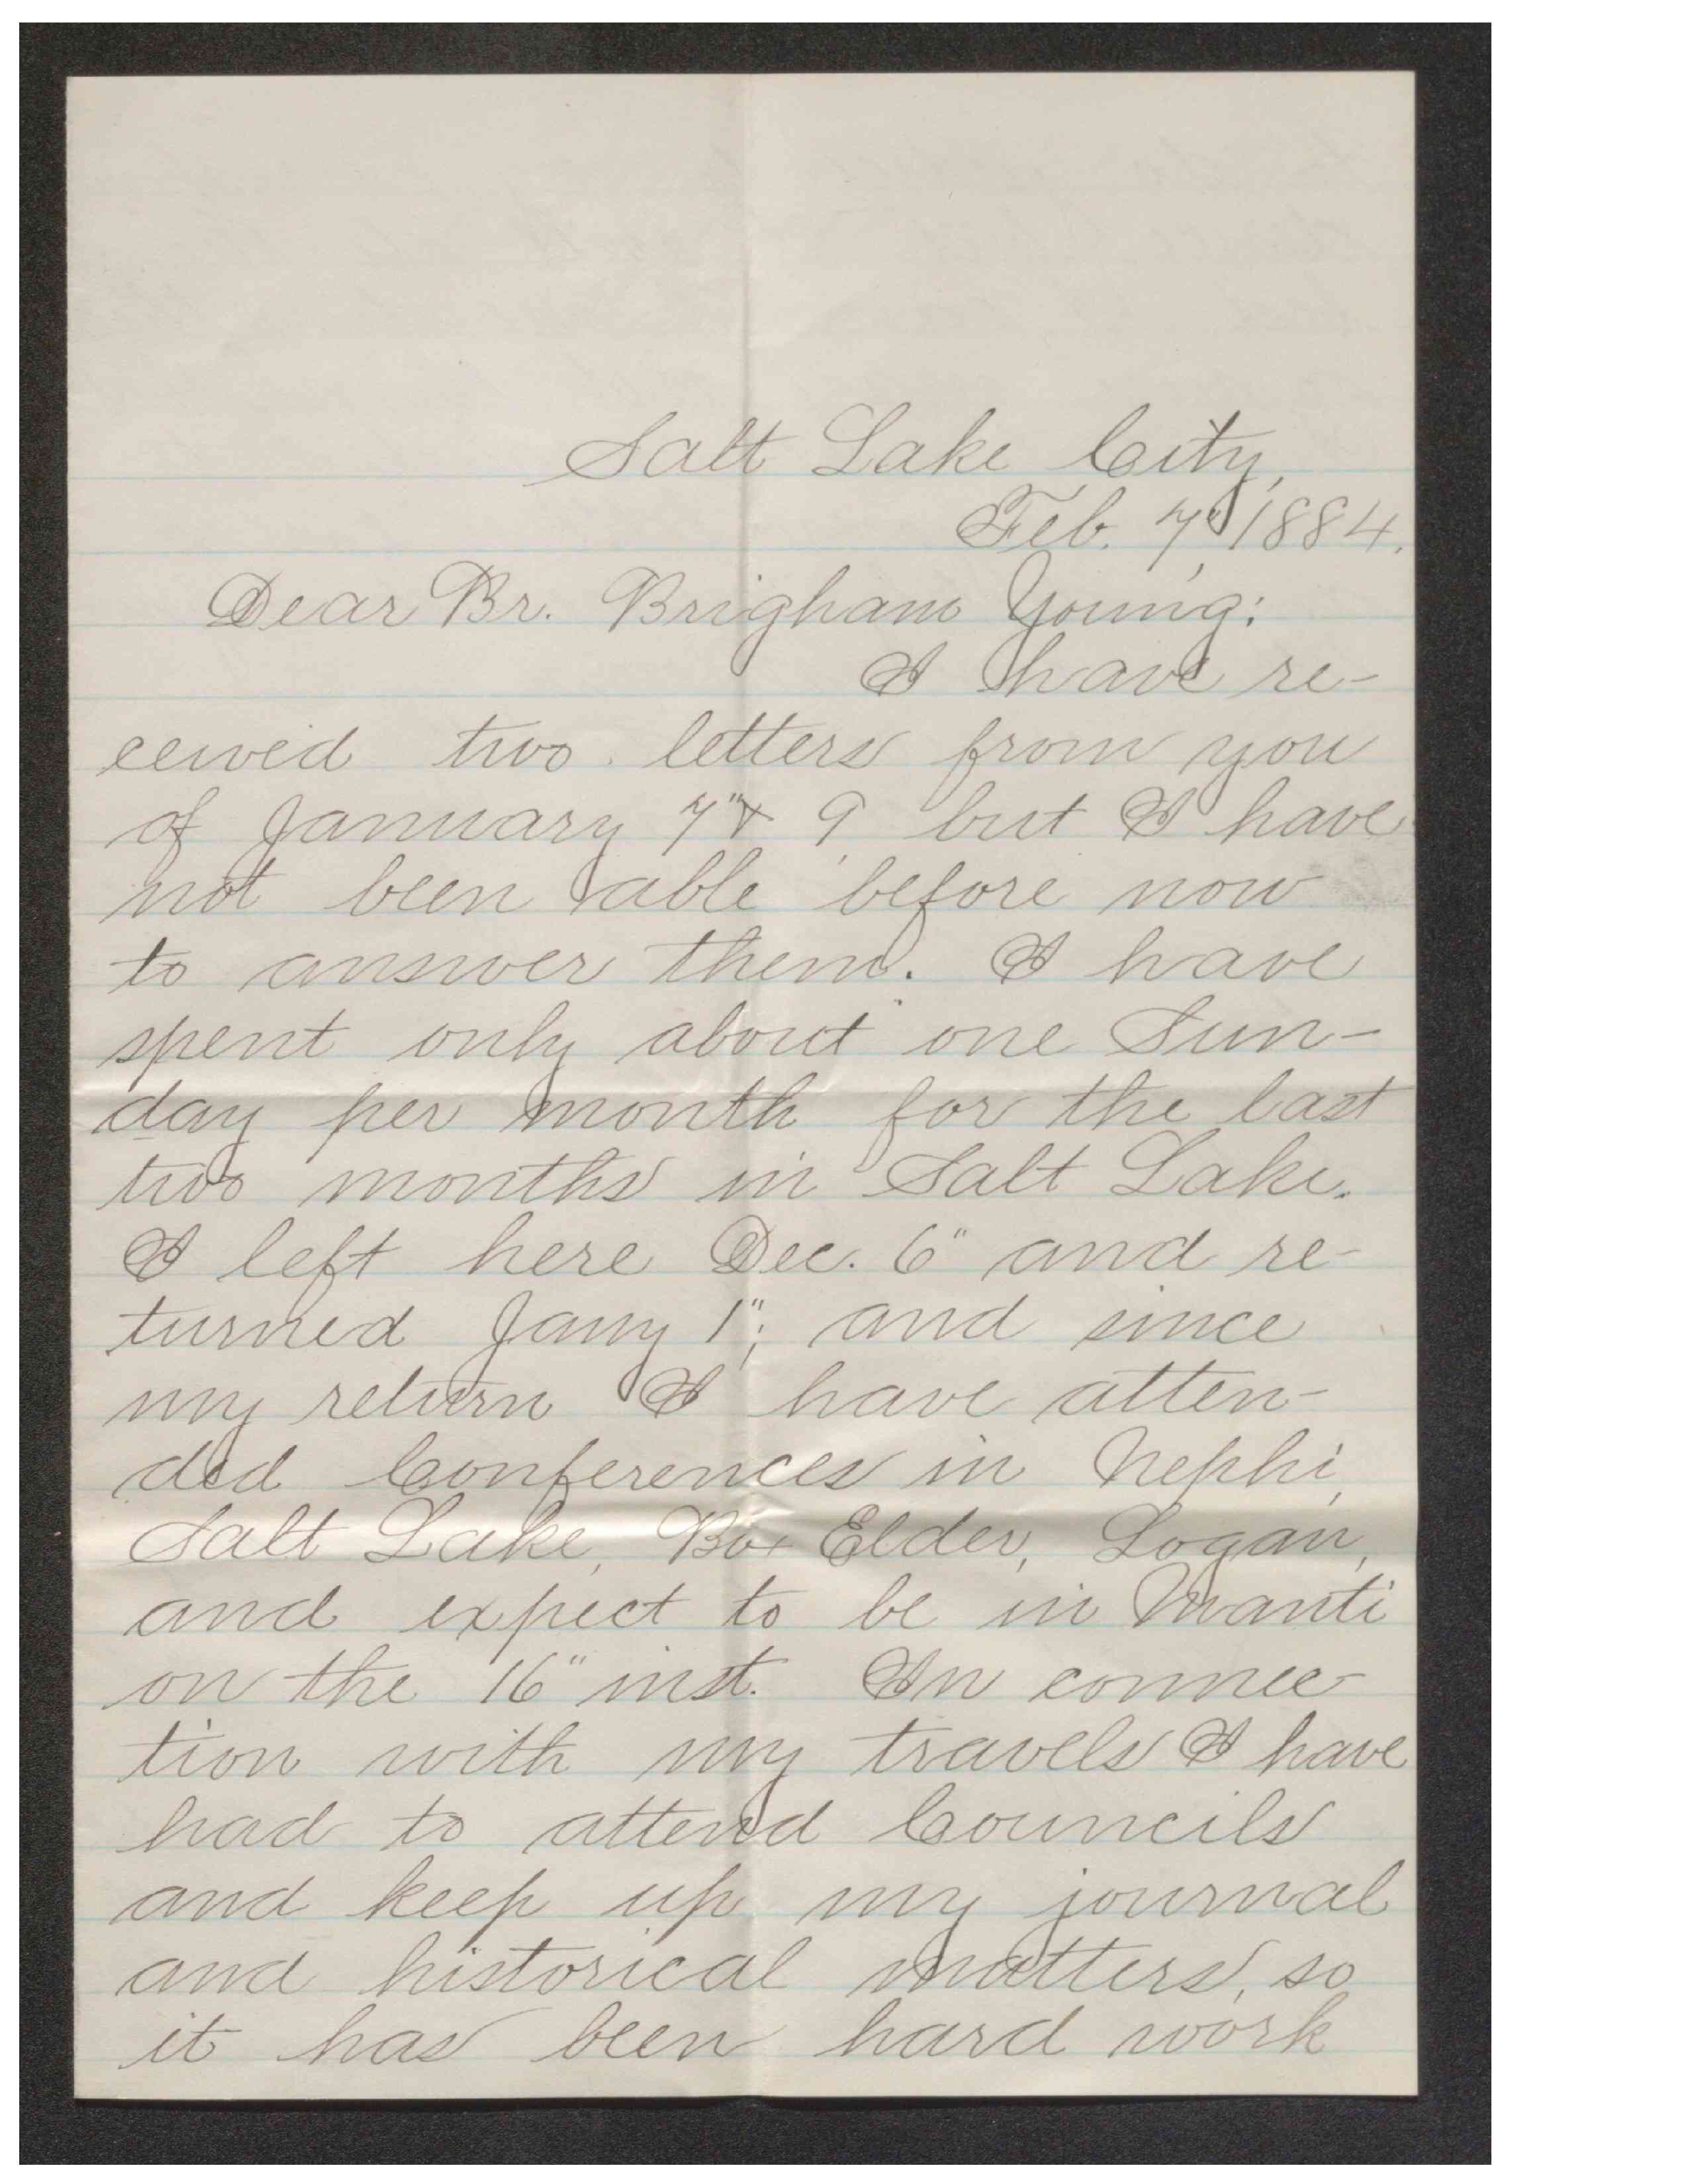 Salt Lake City,
Feb. 7, 1884.
Dear Br. Brigham Young:
I have re-
ceived two letters from you
of January 7" & 9, but I have
not been able before now
to answer them. I have
spent only about one Sun-
day per month for the last
two months in Salt Lake.
I left here Dec. 6" and re-
turned Jany 1"; and since
my return I have atten-
ded Conferences in Nephi,
Salt Lake, Box Elder, Logan,
and expect to be in Manti
on the 16" inst. In connec-
tion with my travels I have
had to attend Councils
and keep up my journal
and historical matters, so
it has been hard work